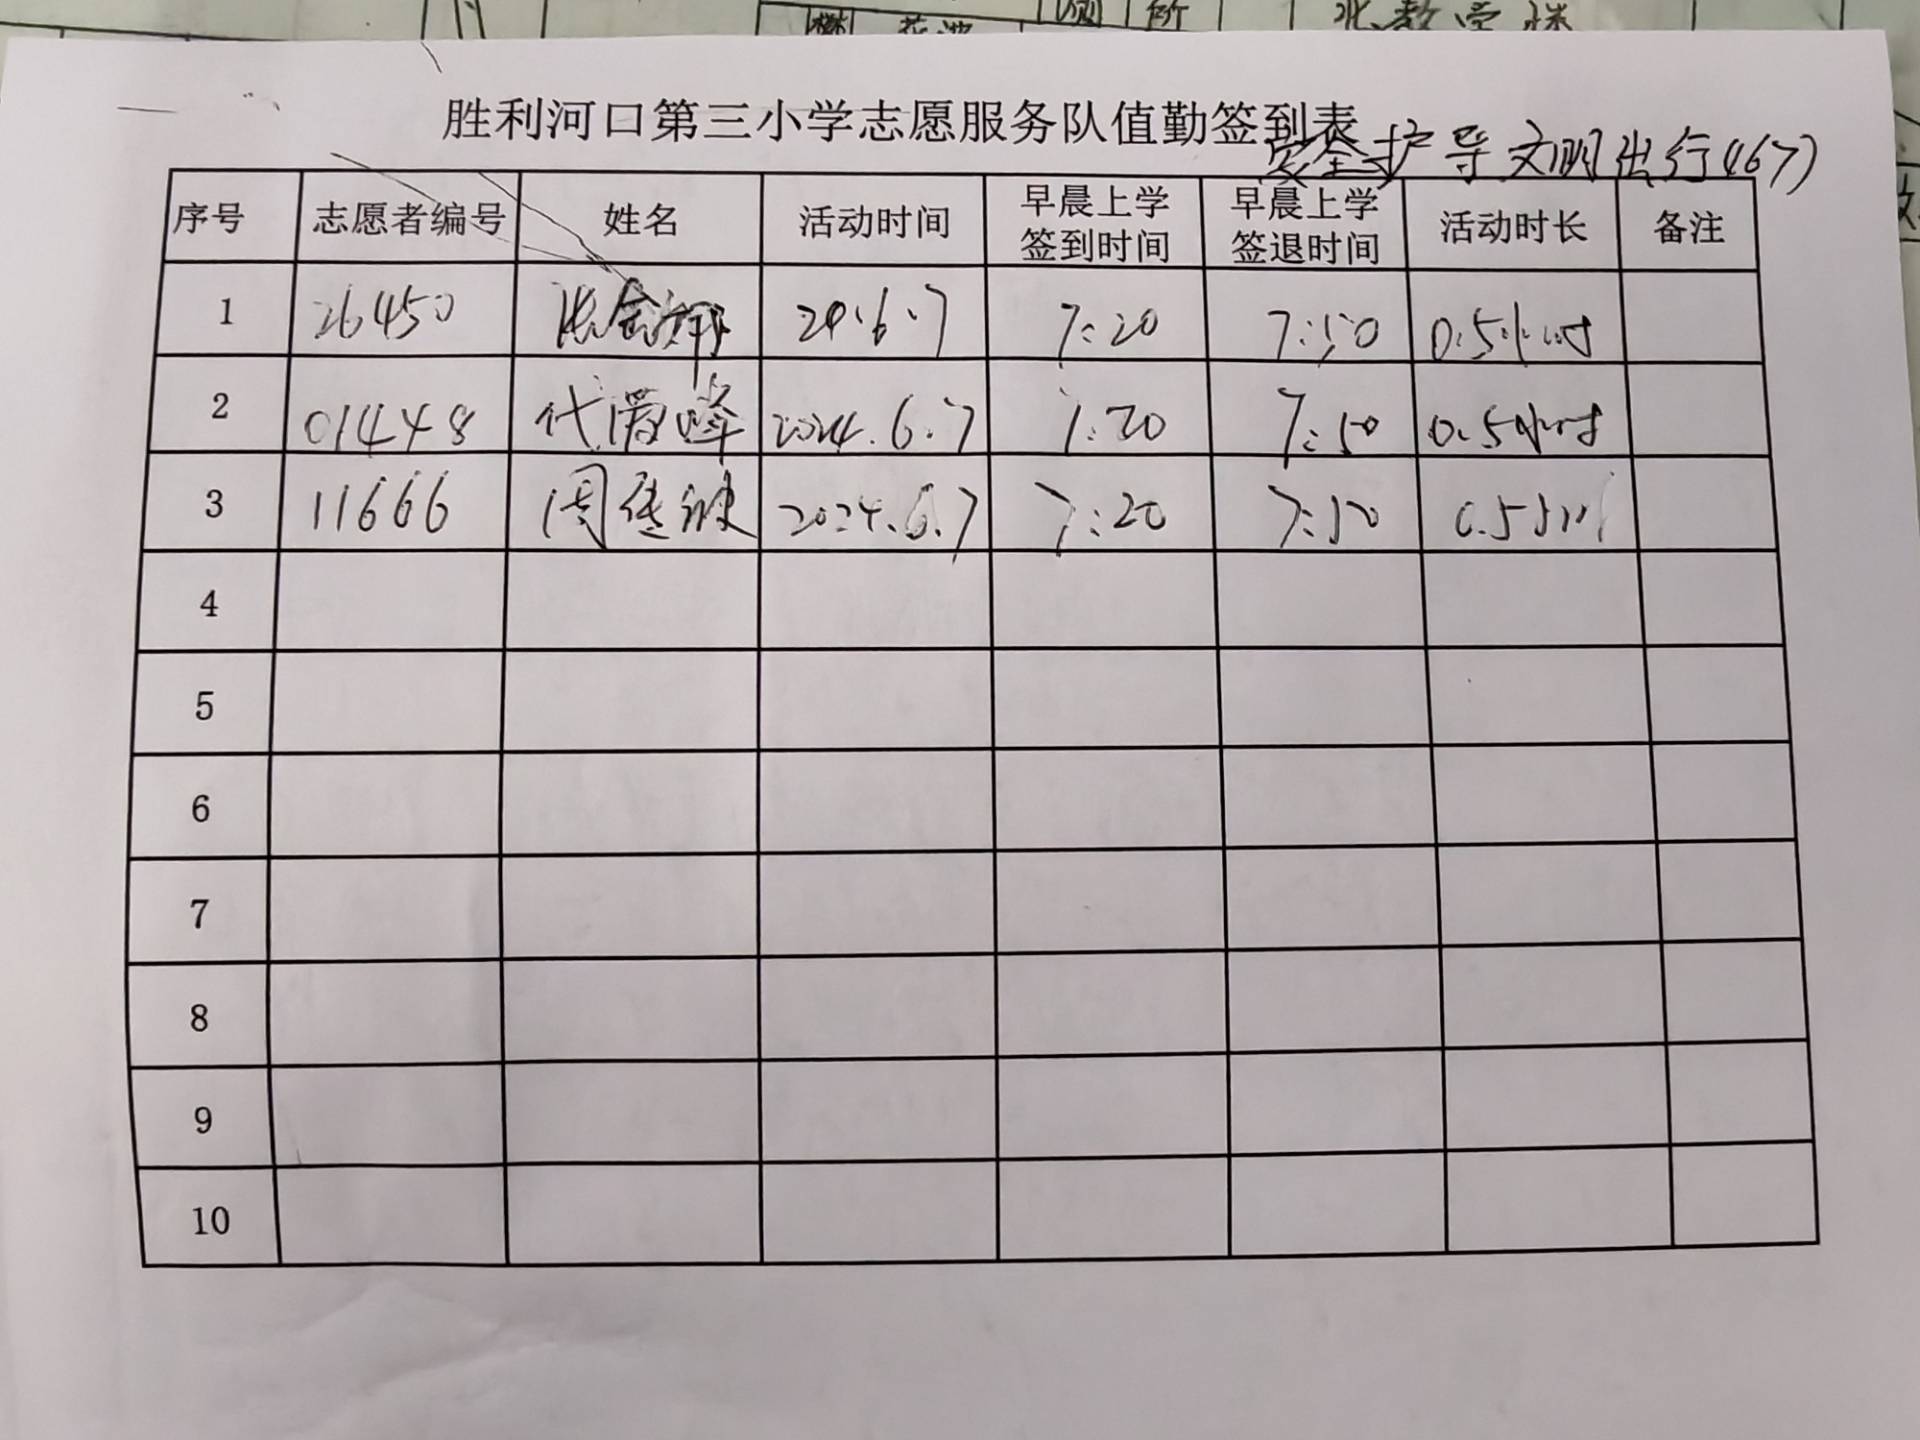 胜利河口第三小学志愿服务队值勤签到表
安全护导文明出行(67)
序号 志愿者编号 姓名 活动时间 早晨上学签到时间 早晨上学签退时间 活动时长 备注
1 26450 24.6.7 7:20 7:50 0.5小时
2 01448 2024.6.7 7:20 7:50 0.5小时
3 11666 2024.6.7 7:20 7:50
4
5
6
7
8
9
10